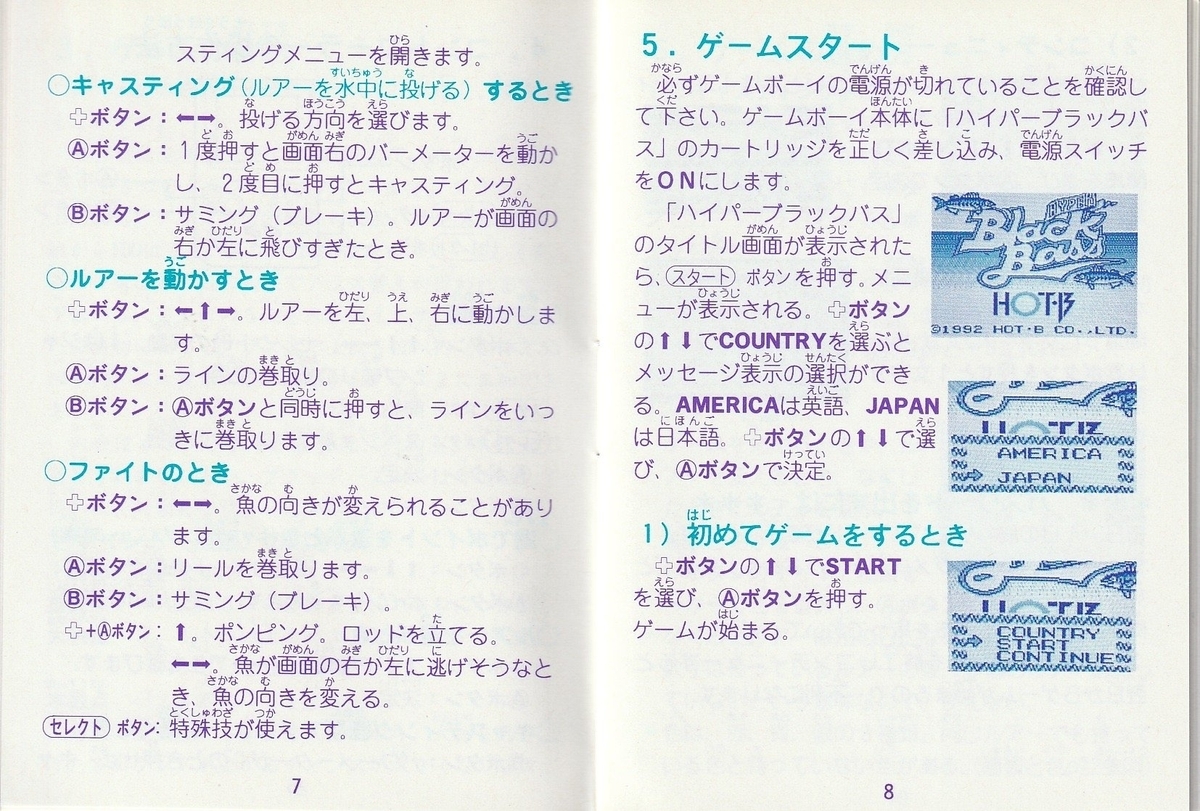 スティングメニューを開きます。
○キャスティング(ルアーを水中に投げる)するとき
✚ボタン：⬅➡。投げる方向を選びます。
Ⓐボタン：1度押すと画面右のバーメーターを動か
し、2度目に押すとキャスティング。
Ⓑボタン：サミング(ブレーキ)。ルアーが画面の
右か左に飛びすぎたとき。
○ルアーを動かすとき
✚ボタン：⬅⬆➡。ルアーを左、上、右に動かしま
す。
Ⓐボタン：ラインの巻取り。
Ⓑボタン：Ⓐボタンと同時に押すと、ラインをいっ
きに巻取ります。
○ファイトのとき
✚ボタン：⬅➡。魚の向きが変えられることがあり
ます。
Ⓐボタン：リールを巻取ります。
Ⓑボタン：サミング(ブレーキ)。
✚+Ⓐボタン：⬆。ポンピング。ロッドを立てる。
⬅➡。魚が画面の右か左に逃げそうなと
き、魚の向きを変える。
セレクト ボタン：特殊技が使えます。
7
5．ゲームスタート
必ずゲームボーイの電源が切れていることを確認し
て下さい。ゲームボーイ本体に「ハイパーブラックバ
ス」のカートリッジを正しく差し込み、電源スイッチ
をONにします。
「ハイパーブラックバス」
のタイトル画面が表示された
ら、スタート ボタンを押す。メニ
ューが表示される。✚ボタン
の⬆⬇でCOUNTRYを選ぶと
メッセージ表示の選択ができ
る。AMERICAは英語、JAPAN
は日本語。✚ボタンの⬆⬇で選
び、Ⓐボタンで決定。
HYPER
Black
Bass
HOT・B
©1992 HOT・B CO.,LTD.
AMERICA
➡ JAPAN
1）初めてゲームをするとき
✚ボタンの⬆⬇でSTART
を選び、Ⓐボタンを押す。
ゲームが始まる。
COUNTRY
➡ START
CONTINUE
8